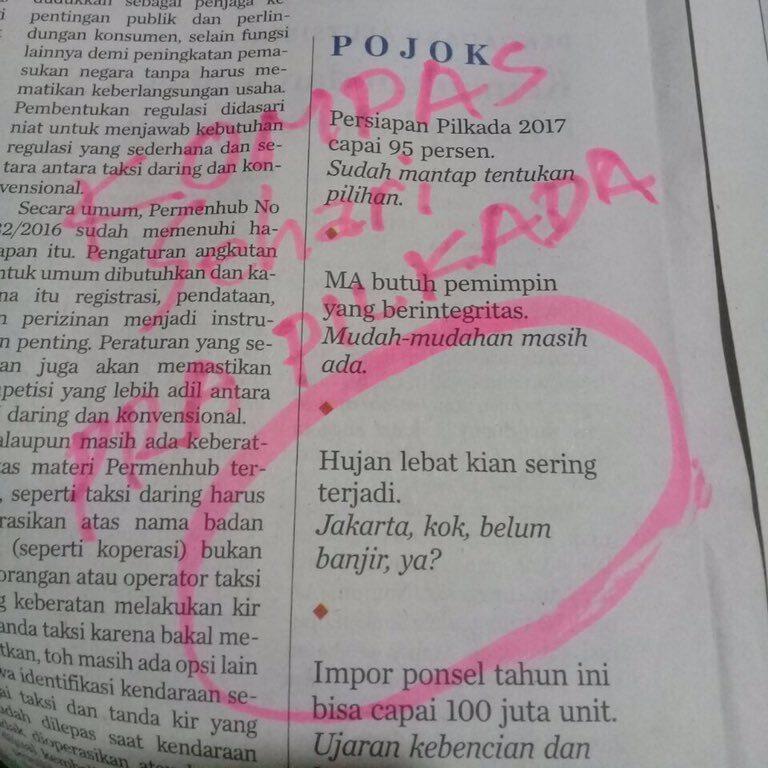 pentingan publik dan perlin-
dungan konsumen, selain fungsi
lainnya demi peningkatan pema-
sukan negara tanpa harus me-
matikan keberlangsungan usaha.
Pembentukan regulasi didasari
niat untuk menjawab kebutuhan
regulasi yang sederhana dan se-
tara antara taksi daring dan kon-
vensional.
Secara umum, Permenhub No
32/2016 sudah memenuhi ha-
apan itu. Pengaturan angkutan
ntuk umum dibutuhkan dan ka-
na itu registrasi, pendataan,
n perizinan menjadi instru-
n penting. Peraturan yang se-
an juga akan memastikan
petisi yang lebih adil antara
daring dan konvensional.
alaupun masih ada keberat-
as materi Permenhub ter-
, seperti taksi daring harus
rasikan atas nama badan
(seperti koperasi) bukan
orangan atau operator taksi
g keberatan melakukan kir
anda taksi karena bakal me-
tkan, toh masih ada opsi lain
wa identifikasi kendaraan se-
ai taksi dan tanda kir yang
dah dilepas saat kendaraan
dioperasikan
POJOK
Persiapan Pilkada 2017
capai 95 persen.
Sudah mantap tentukan
pilihan.
MA butuh pemimpin
yang berintegritas.
Mudah-mudahan masih
ada.
Hujan lebat kian sering
terjadi.
Jakarta, kok, belum
banjir, ya?
Impor ponsel tahun ini
bisa capai 100 juta unit.
Ujaran kebencian dan
KOMPAS
Sehari
PRA PILKADA